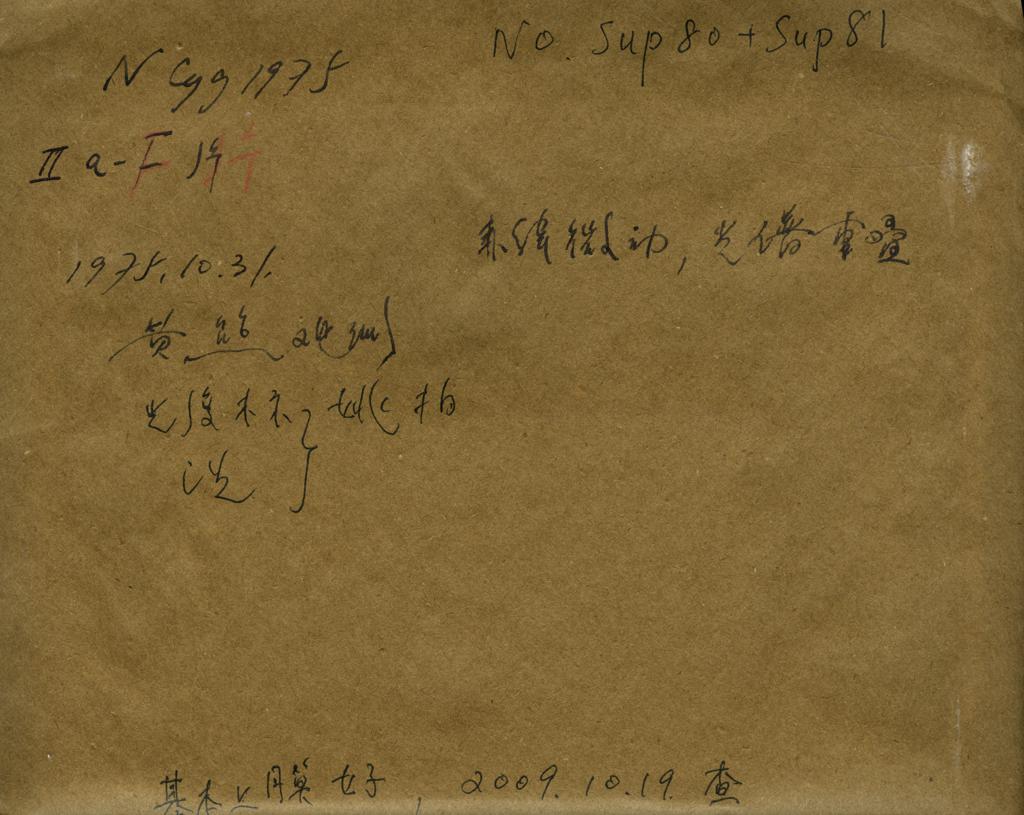 No. Sup 80 + Sup 81
N Cyg 1975
IIa-F 片
赤纬微动, 光谱重叠
1975.10.31.
黄 观测
光度标 姚 拍
洗
基本上膜好, 2009.10.19. 查